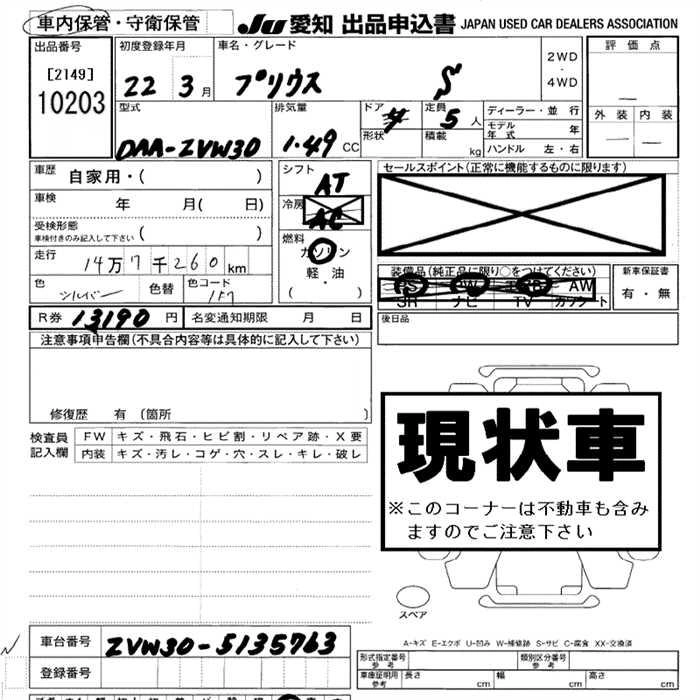 車内保管・守衛保管
JU 愛知 出品申込書 JAPAN USED CAR DEALERS ASSOCIATION
出品番号
[2149]
10203
初度登録年月
22 3 月
車名・グレード
プリウス S
2WD
・
4WD
評価点
外装 内装
型式
DAA-ZVW30
排気量
1.49 CC
ドア
形状
定員
5 人
積載
kg
ディーラー・並行
モデル年式 年
ハンドル 左・右
車歴 自家用・( )
車検 年 月( 日)
受検形態
車検付きのみ記入して下さい ( )
走行 14万7千260km
色 シルバー 色替 色コード 1F7
シフト
AT
冷房
AC
燃料
ガソリン
軽・油
( ・ )
セールスポイント(正常に機能するものに限ります)
装備品(純正品に限り○をつけてください)
PS PW AW
SR ナビ TV カワシート
新車保証書
有・無
R券 13190 円 名変通知期限 月 日
後日品
注意事項申告欄(不具合内容等は具体的に記入して下さい)
修復歴 有(箇所 )
検査員記入欄
FW キズ・飛石・ヒビ割・リペア跡・X要
内装 キズ・汚レ・コゲ・穴・スレ・キレ・破レ
現状車
※このコーナーは不動車も含み
ますのでご注意下さい
スペア
A-キズ E-エクボ U-凹み W-補修跡 S-サビ C-腐食 XX-交換済
車台番号 ZVW30-5135763
登録番号
形式指定番号
参考
類別区分番号
参考
車庫証明用
参考
長さ cm 幅 cm 高さ cm